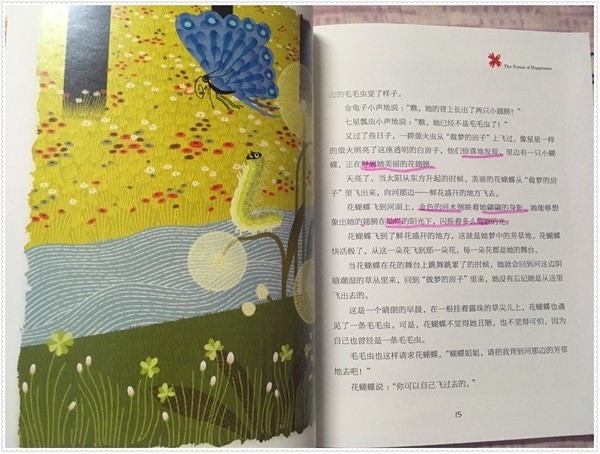 The Forest of Happiness
边的毛毛虫变了样子。
金龟子小声地说：“瞧，她的背上长出了两只小翅膀！”
七星瓢虫小声地说：“瞧，她已经不是毛毛虫了！”
又过了些日子，一群萤火虫从“做梦的房子”上飞过，像星星一样
的萤火照亮了这座透明的白房子，他们惊喜地发现，里边有一只小蝴
蝶，正在舒展她美丽的花翅膀。
天亮了，当太阳从东方升起的时候，美丽的花蝴蝶从“做梦的房
子”里飞出来，向河那边——鲜花盛开的地方飞去。
花蝴蝶飞到河面上，金色的河水倒映着她翩翩的身影，她能够想
象出她的翅膀在灿烂的阳光下，闪烁着多么的光。
花蝴蝶飞到了鲜花盛开的地方，这就是她梦中的芳草地，花蝴蝶
快活极了，从这一朵花飞到那一朵花，每一朵花都是她的舞台。
当花蝴蝶在花的舞台上跳舞跳累了的时候，她就会回到河这边阴
暗潮湿的草丛里来，回到“做梦的房子”里来，她没有忘记她是从这里
飞出去的。
这是一个晴朗的早晨，在一根挂着露珠的草尖儿上，花蝴蝶也遇
见了一条毛毛虫。可是，花蝴蝶不觉得她丑陋，也不觉得可怕，因为
自己也曾经是一条毛毛虫。
毛毛虫也这样请求花蝴蝶，“蝴蝶姐姐，请把我背到河那边的芳草
地去吧！”
花蝴蝶说：“你可以自己飞过去的。”
15